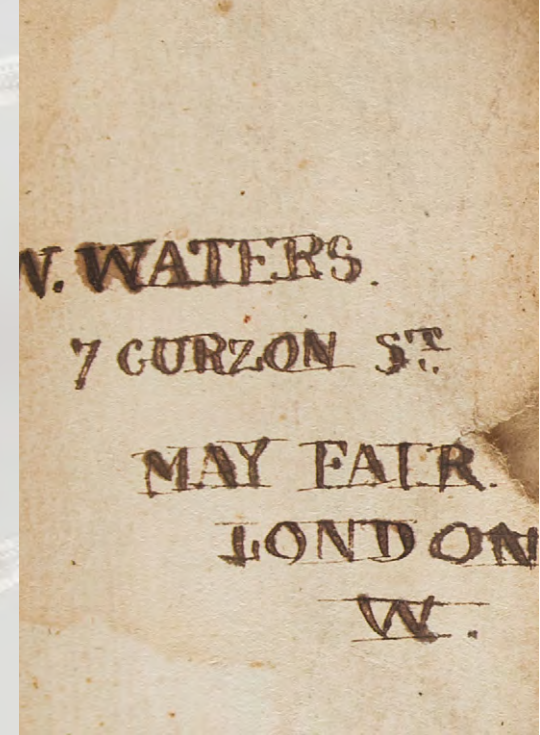 W. WATERS.
7 CURZON ST.
MAY FAIR.
LONDON
W.